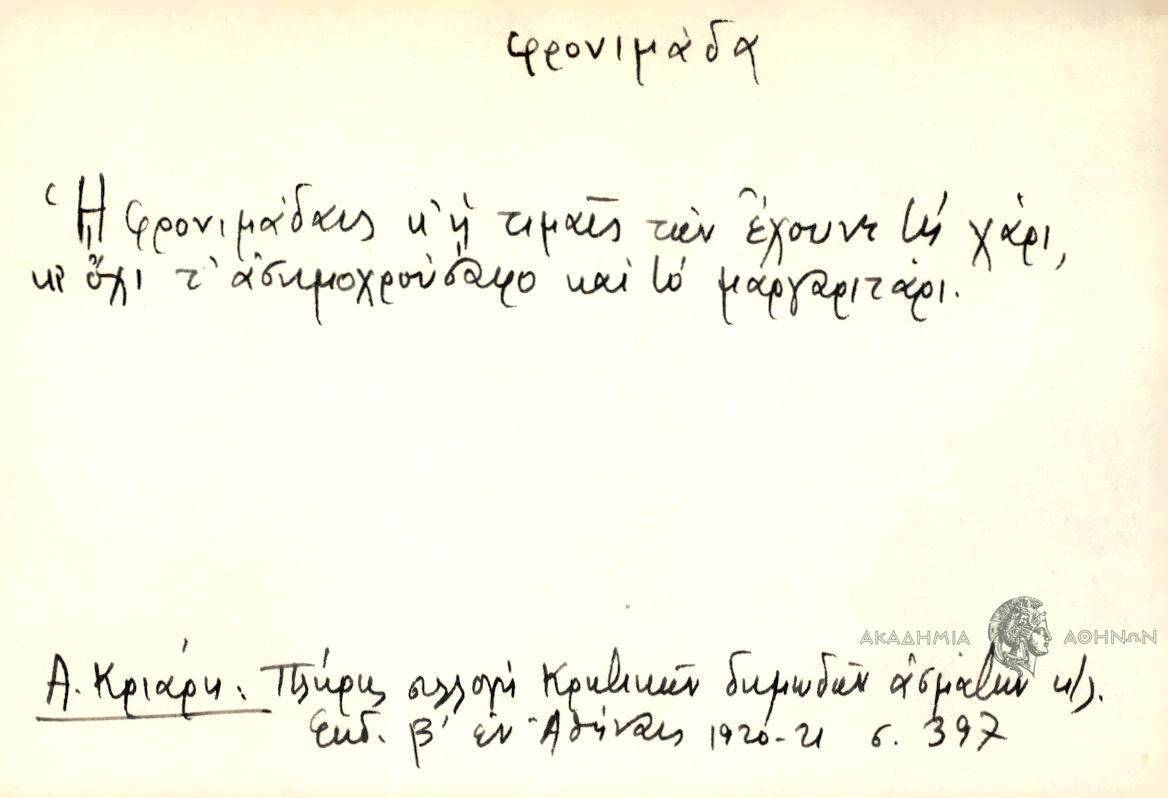 φρονιμάδα
Ἡ φρονιμάδαις κ' ἡ τιμαῖς τῶν ἔχουνε τὴ χάρι,
κι ὄχι τ' ἀσημοχρούσαφο καὶ τὸ μαργαριτάρι.
ΑΚΑΔΗΜΙΑ ΑΘΗΝΩΝ
Α. Κριάρη: Πλήρης συλλογὴ Κρητικῶν δημωδῶν ἀσμάτων κ/λ.
Ἐκδ. β' ἐν Ἀθήναις 1920-21 σ. 397